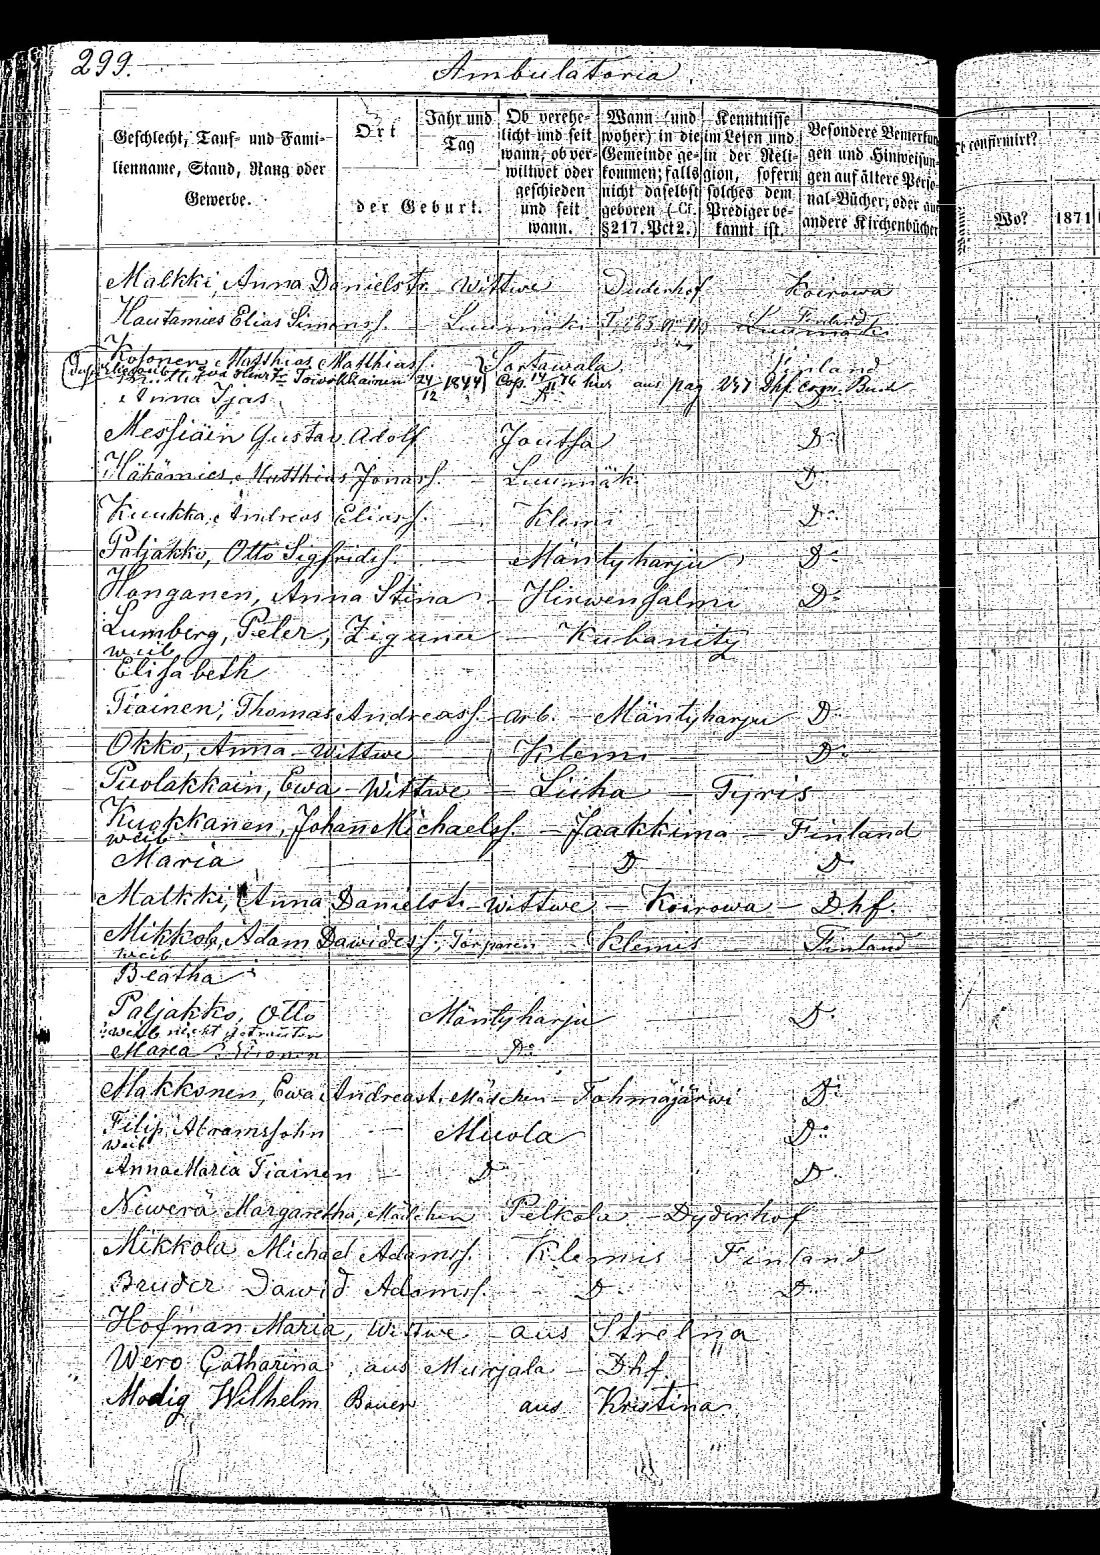 299.
Ambulatoria.
Geschlecht, Tauf- und Fami-
lienname, Stand, Rang oder
Gewerbe.
Ort
Jahr und
Tag
der Geburt.
Ob verehe-
licht und seit
wann, ob ver-
wittwet oder
geschieden
und seit
wann.
Wann (und
woher) in die
Gemeinde ge-
kommen; falls
nicht daselbst
geboren (Cf.
§217. Pct 2.)
Kenntnisse
im Lesen und
in der Reli-
gion, sofern
solches dem
Prediger be-
kannt ist.
Besondere Bemerkun
gen und Hinweisun-
gen auf ältere Perso-
nal-Bücher, oder auf
andere Kirchenbücher
confirmirt?
Wo?
1871
Malkki, Anna Danielstr. Wittwe Duderhof Koirowa
Hautamies Elias Simonss. Luumäki Finland
Kosonen Matthias Matthiass. Sortawala Finland
24/12 1844 Cop. 76 hier aus pag 247 Dhf.
Anna Tjas Do
Messiäin Gustav Adolf Joutsa Do
Häkämies Matthias Jonass. Luumäki Do
Kuukka, Andreas Eliass. Klemi Do
Paljakko, Otto Sigfridss. Mäntyharju Do
Honganen, Anna Stina Hirwensalmi Do
Lumberg, Peter, Ziguner Kubanitz
weib
Elisabeth
Tiainen, Thomas Andreass. arb. Mäntyharju Do
Okko, Anna Wittwe Klemi Do
Puolakkain, Ewa Wittwe Liiha Tyris
Kuokkanen, Johan Michaelss. Jaakkima Finland
weib
Maria Do Do
Malkki, Anna Danielstr. Wittwe Koirowa Dhf.
Mikkola, Adam Dawidss. Torpare Klemis Finland
weib
Beatha
Paljakko, Otto Mäntyharju Do
weib nicht getrauten
Maria Do
Makkonen, Ewa Andreast. Mädchen Tohmajärwi Do
Filip Abramssohn Muola Do
weib
Anna Maria Tiainen Do Do
Niwerä Margaretha, Mädchen Pelkola Dyderhof
Mikkola Michael Adamss. Klemis Finland
Bruder Dawid Adamss. Do Do
Hofman Maria, Wittwe aus Strelna
Wero Catharina aus Murjala Dhf.
Modig Wilhelm Bauer aus Kristina